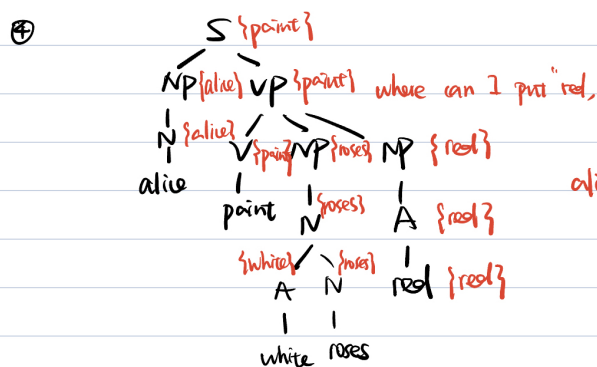 ④ S {paint}
NP {alice} VP {paint} where can I put "red,
N {alice} V {paint} NP {roses} NP {red}
alice paint N {roses} A {red}
{white} A N {roses} red {red}
white roses